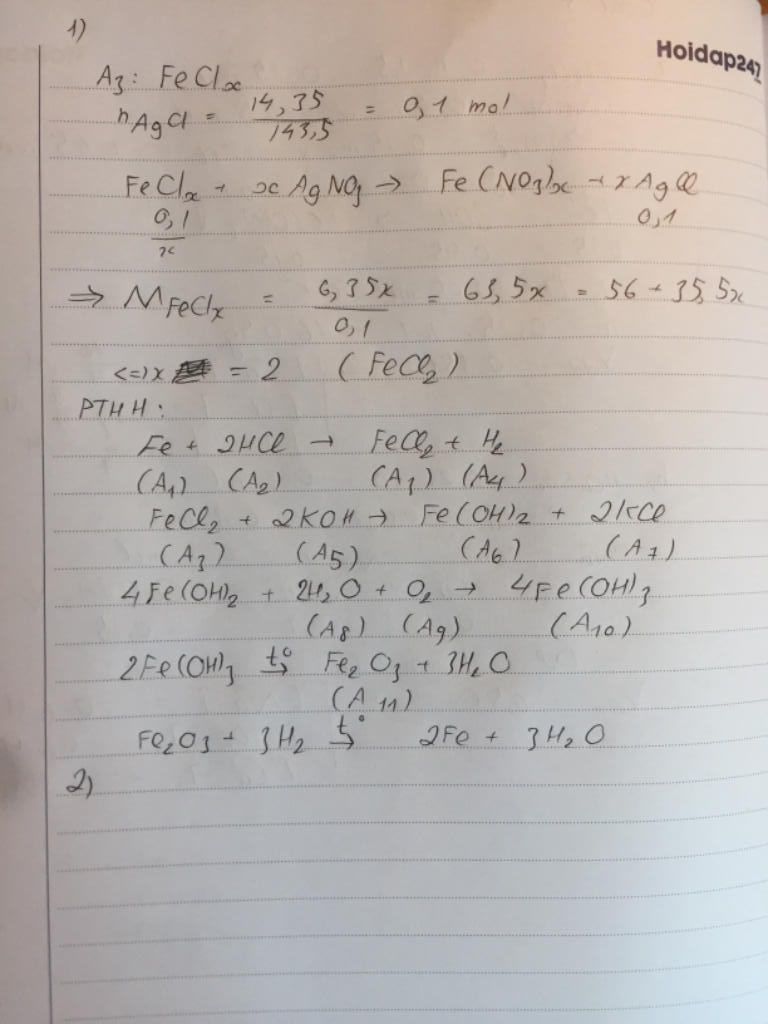 1)
Hoidap247
A3: FeClx
nAgCl = 14,35/143,5 = 0,1 mol
FeClx + xAgNO3 → Fe(NO3)x + xAgCl
0,1/x 0,1
⇒ MFeClx = 6,35x/0,1 = 63,5x = 56 + 35,5x
<=> x = 2 (FeCl2)
PTHH:
Fe + 2HCl → FeCl2 + H2
(A1) (A2) (A3) (A4)
FeCl2 + 2KOH → Fe(OH)2 + 2KCl
(A3) (A5) (A6) (A7)
4Fe(OH)2 + 2H2O + O2 → 4Fe(OH)3
(A8) (A9) (A10)
2Fe(OH)3 t°→ Fe2O3 + 3H2O
(A11)
Fe2O3 + 3H2 t°→ 2Fe + 3H2O
2)